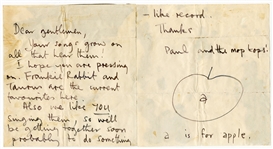 Dear gentlemen,
Your songs grow on
all that hear them.
I hope you are pressing
on. Frankie Rabbit and
are the current
favourites here.
Also we like YOU
singing them, so we'll
be getting together soon
probably to do something
- like record.
Thanks
Paul and the mop tops!
a
a is for apple.